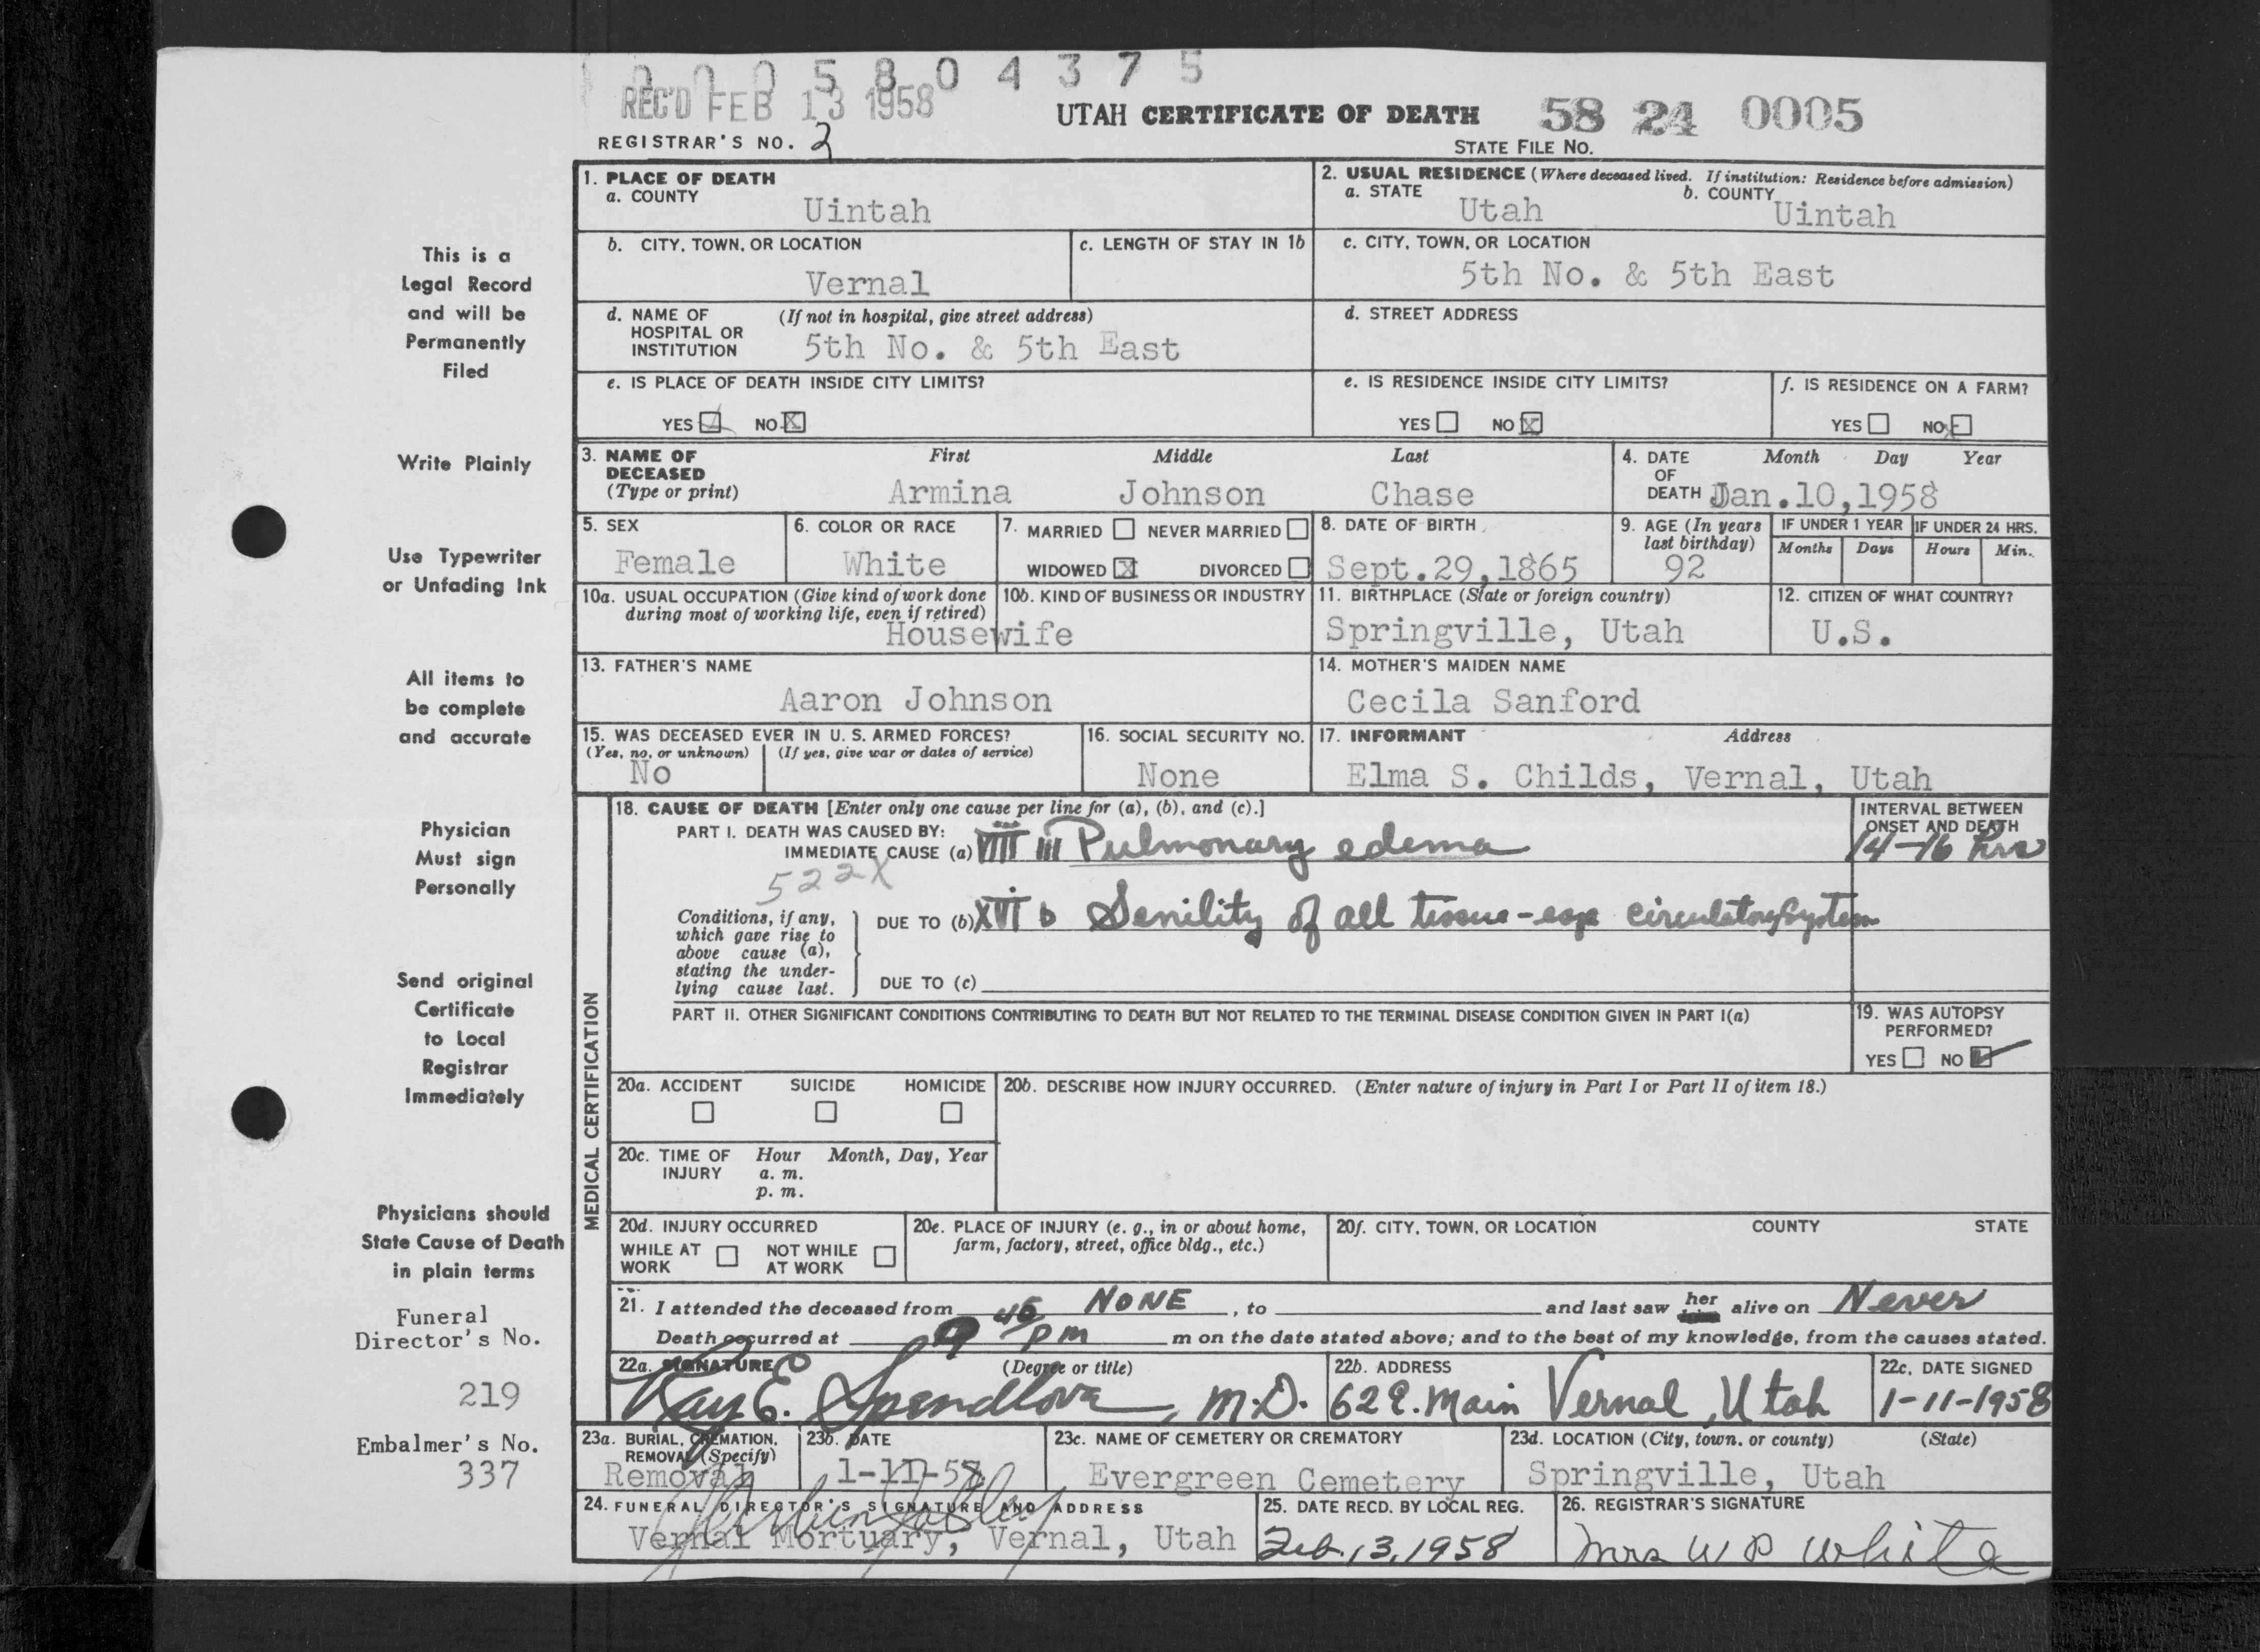 0 0 0 5 8 0 4 3 7 5
REC'D FEB 13 1958
UTAH CERTIFICATE OF DEATH 58 24 0005
REGISTRAR'S NO. 2
STATE FILE NO.
1. PLACE OF DEATH
a. COUNTY
Uintah
2. USUAL RESIDENCE (Where deceased lived. If institution: Residence before admission)
a. STATE
Utah
b. COUNTY
Uintah
b. CITY, TOWN, OR LOCATION
Vernal
c. LENGTH OF STAY IN 1b
c. CITY, TOWN, OR LOCATION
5th No. & 5th East
d. NAME OF HOSPITAL OR INSTITUTION
(If not in hospital, give street address)
5th No. & 5th East
d. STREET ADDRESS
e. IS PLACE OF DEATH INSIDE CITY LIMITS?
YES NO X
e. IS RESIDENCE INSIDE CITY LIMITS?
YES NO X
f. IS RESIDENCE ON A FARM?
YES NO X
3. NAME OF DECEASED
(Type or print)
First Middle Last
Armina Johnson Chase
4. DATE OF DEATH
Month Day Year
Jan.10,1958
5. SEX
Female
6. COLOR OR RACE
White
7. MARRIED NEVER MARRIED
WIDOWED X DIVORCED
8. DATE OF BIRTH
Sept.29,1865
9. AGE (In years last birthday)
92
IF UNDER 1 YEAR
Months Days
IF UNDER 24 HRS.
Hours Min.
10a. USUAL OCCUPATION (Give kind of work done during most of working life, even if retired)
Housewife
10b. KIND OF BUSINESS OR INDUSTRY
11. BIRTHPLACE (State or foreign country)
Springville, Utah
12. CITIZEN OF WHAT COUNTRY?
U.S.
13. FATHER'S NAME
Aaron Johnson
14. MOTHER'S MAIDEN NAME
Cecila Sanford
15. WAS DECEASED EVER IN U. S. ARMED FORCES?
(Yes, no, or unknown) (If yes, give war or dates of service)
No
16. SOCIAL SECURITY NO.
None
17. INFORMANT Address
Elma S. Childs, Vernal, Utah
MEDICAL CERTIFICATION
18. CAUSE OF DEATH [Enter only one cause per line for (a), (b), and (c).]
PART I. DEATH WAS CAUSED BY:
IMMEDIATE CAUSE (a) VIII iii Pulmonary edema
INTERVAL BETWEEN ONSET AND DEATH
14-16 hrs
522X
Conditions, if any, which gave rise to above cause (a), stating the underlying cause last.
DUE TO (b) XVI b Senility of all tissue - esp circulatory system
DUE TO (c)
PART II. OTHER SIGNIFICANT CONDITIONS CONTRIBUTING TO DEATH BUT NOT RELATED TO THE TERMINAL DISEASE CONDITION GIVEN IN PART I(a)
19. WAS AUTOPSY PERFORMED?
YES NO ✓
20a. ACCIDENT SUICIDE HOMICIDE
20b. DESCRIBE HOW INJURY OCCURRED. (Enter nature of injury in Part I or Part II of item 18.)
20c. TIME OF INJURY Hour Month, Day, Year
a. m.
p. m.
20d. INJURY OCCURRED
WHILE AT WORK NOT WHILE AT WORK
20e. PLACE OF INJURY (e. g., in or about home, farm, factory, street, office bldg., etc.)
20f. CITY, TOWN, OR LOCATION COUNTY STATE
21. I attended the deceased from NONE, to and last saw her him alive on Never
Death occurred at 9 45 pm m on the date stated above; and to the best of my knowledge, from the causes stated.
22a. SIGNATURE (Degree or title)
Ray E. Spendlove, M.D.
22b. ADDRESS
62 E. Main Vernal, Utah
22c. DATE SIGNED
1-11-1958
23a. BURIAL, CREMATION, REMOVAL (Specify)
Removal
23b. DATE
1-11-58
23c. NAME OF CEMETERY OR CREMATORY
Evergreen Cemetery
23d. LOCATION (City, town, or county) (State)
Springville, Utah
24. FUNERAL DIRECTOR'S SIGNATURE AND ADDRESS
Vernal Mortuary, Vernal, Utah
25. DATE RECD. BY LOCAL REG.
Feb. 13, 1958
26. REGISTRAR'S SIGNATURE
Mrs W P White
This is a
Legal Record
and will be
Permanently
Filed
Write Plainly
Use Typewriter
or Unfading Ink
All items to
be complete
and accurate
Physician
Must sign
Personally
Send original
Certificate
to Local
Registrar
Immediately
Physicians should
State Cause of Death
in plain terms
Funeral
Director's No.
219
Embalmer's No.
337